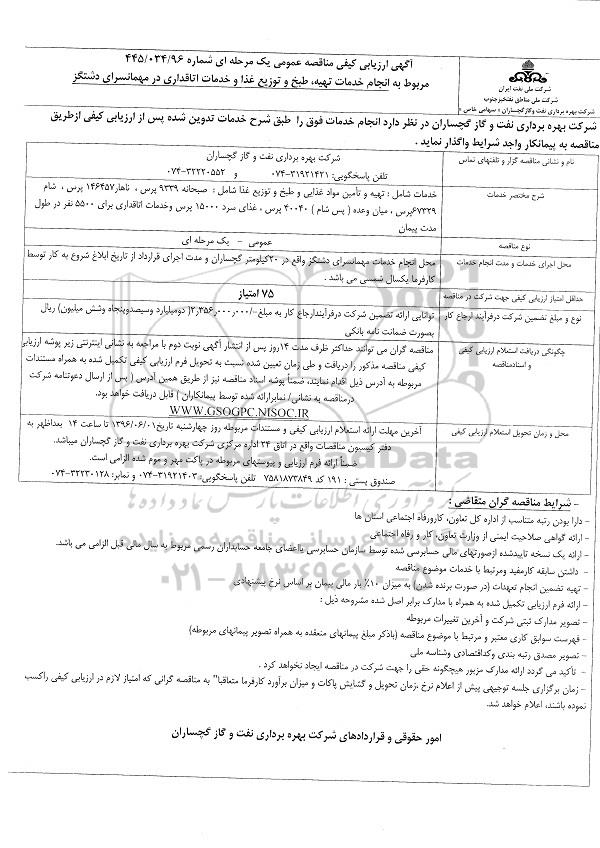 آگهی ارزیابی کیفی مناقصه عمومی یک مرحله ای شماره ۴۴۵/۰۳۴/۹۶
مربوط به انجام خدمات تهیه، طبخ و توزیع غذا و خدمات اتاقداری در مهمانسرای دشتگز
شرکت ملی نفت ایران
شرکت ملی مناطق نفتخیز جنوب
شرکت بهره برداری نفت وگاز گچساران « سهامی خاص »
شرکت بهره برداری نفت و گاز گچساران در نظر دارد انجام خدمات فوق را طبق شرح خدمات تدوین شده پس از ارزیابی کیفی ازطریق
مناقصه به پیمانکار واجد شرایط واگذار نماید .
نام و نشانی مناقصه گزار و تلفنهای تماس
شرکت بهره برداری نفت و گاز گچساران
تلفن پاسخگویی: ۳۱۹۲۱۴۲۱-۰۷۴ و ۳۲۲۲۰۵۵۲-۰۷۴
شرح مختصر خدمات
خدمات شامل : تهیه و تأمین مواد غذایی و طبخ و توزیع غذا شامل : صبحانه ۹۳۳۹ پرس ، ناهار۱۴۶۴۵۷ پرس ، شام
۶۷۳۲۹پرس ، میان وعده ( پس شام ) ۴۰۰۴۰ پرس ، غذای سرد ۱۵۰۰۰ پرس وخدمات اتاقداری برای ۵۵۰۰ نفر در طول
مدت پیمان
نوع مناقصه
عمومی - یک مرحله ای
محل اجرای خدمات و مدت انجام خدمات
محل انجام خدمات مهمانسرای دشتگز واقع در ۲۰کیلومتر گچساران و مدت اجرای قرارداد از تاریخ ابلاغ شروع به کار توسط
کارفرما یکسال شمسی می باشد .
حداقل امتیاز ارزیابی کیفی جهت شرکت در مناقصه
۷۵ امتیاز
نوع و مبلغ تضمین شرکت درفرآیند ارجاع کار
توانایی ارائه تضمین شرکت درفرآیندارجاع کار به مبلغ/-۲,۳۵۶,۰۰۰,۰۰۰(دومیلیارد وسیصدوپنجاه وشش میلیون) ریال
بصورت ضمانت نامه بانکی
چگونگی دریافت استعلام ارزیابی کیفی
و اسنادمناقصه
مناقصه گران می توانند حداکثر ظرف مدت ۱۴روز پس از انتشار آگهی نوبت دوم با مراجعه به نشانی اینترنتی زیر پوشه ارزیابی
کیفی مناقصه مذکور را دریافت و طی زمان تعیین شده نسبت به تحویل فرم ارزیابی کیفی تکمیل شده به همراه مستندات
مربوطه به آدرس ذیل اقدام نمایند، ضمناً پوشه اسناد مناقصه نیز از طریق همین آدرس ( پس از ارسال دعوتنامه شرکت
درمناقصه به نشانی/ نمابرارائه شده توسط پیمانکاران ) قابل دریافت خواهد بود.
WWW.GSOGPC.NISOC.IR
محل و زمان تحویل استعلام ارزیابی کیفی
آخرین مهلت ارائه استعلام ارزیابی کیفی و مستندات مربوطه روز چهارشنبه تاریخ۱۳۹۶/۰۶/۰۱ تا ساعت ۱۴ بعداظهر به
دفتر کیسیون مناقصات واقع در اتاق ۲۴ اداره مرکزی شرکت بهره برداری نفت و گاز گچساران میباشد.
ضمناً ارائه فرم ارزیابی و پیوستهای مربوطه در پاکت مهر و موم شده الزامی است.
صندوق پستی : ۱۹۱ کد ۷۵۸۱۸۷۳۸۴۹ تلفن پاسخگویی: ۳۱۹۲۱۴۰۳-۰۷۴ و نمابر: ۳۲۲۳۰۱۲۸-۰۷۴
- شرایط مناقصه گران متقاضی :
- دارا بودن رتبه متناسب از اداره کل تعاون، کارورفاه اجتماعی استان ها
- ارائه گواهی صلاحیت ایمنی از وزارت تعاون، کار و رفاه اجتماعی
- ارائه یک نسخه تاییدشده ازصورتهای مالی حسابرسی شده توسط سازمان حسابرسی یااعضای جامعه حسابداران رسمی مربوط به سال مالی قبل الزامی می باشد.
- داشتن سابقه کارمفید ومرتبط با خدمات موضوع مناقصه
- تهیه تضمین انجام تعهدات (در صورت برنده شدن) به میزان ۱۰٪ بار مالی پیمان بر اساس نرخ پیشنهادی
- ارائه فرم ارزیابی تکمیل شده به همراه با مدارک برابر اصل شده مشروحه ذیل :
- تصویر مدارک ثبتی شرکت و آخرین تغییرات مربوطه
- فهرست سوابق کاری معتبر و مرتبط با موضوع مناقصه (باذکر مبلغ پیمانهای منعقده به همراه تصویر پیمانهای مربوطه)
- تصویر مصدق رتبه بندی وکداقتصادی وشناسه ملی
- تأکید می گردد ارائه مدارک مزبور هیچگونه حقی را جهت شرکت در مناقصه ایجاد نخواهد کرد .
- زمان برگزاری جلسه توجیهی پیش از اعلام نرخ ،زمان تحویل و گشایش پاکات و میزان برآورد کارفرما متعاقبا" به مناقصه گرانی که امتیاز لازم در ارزیابی کیفی راکسب
نموده باشند، اعلام خواهد شد.
امور حقوقی و قراردادهای شرکت بهره برداری نفت و گاز گچساران